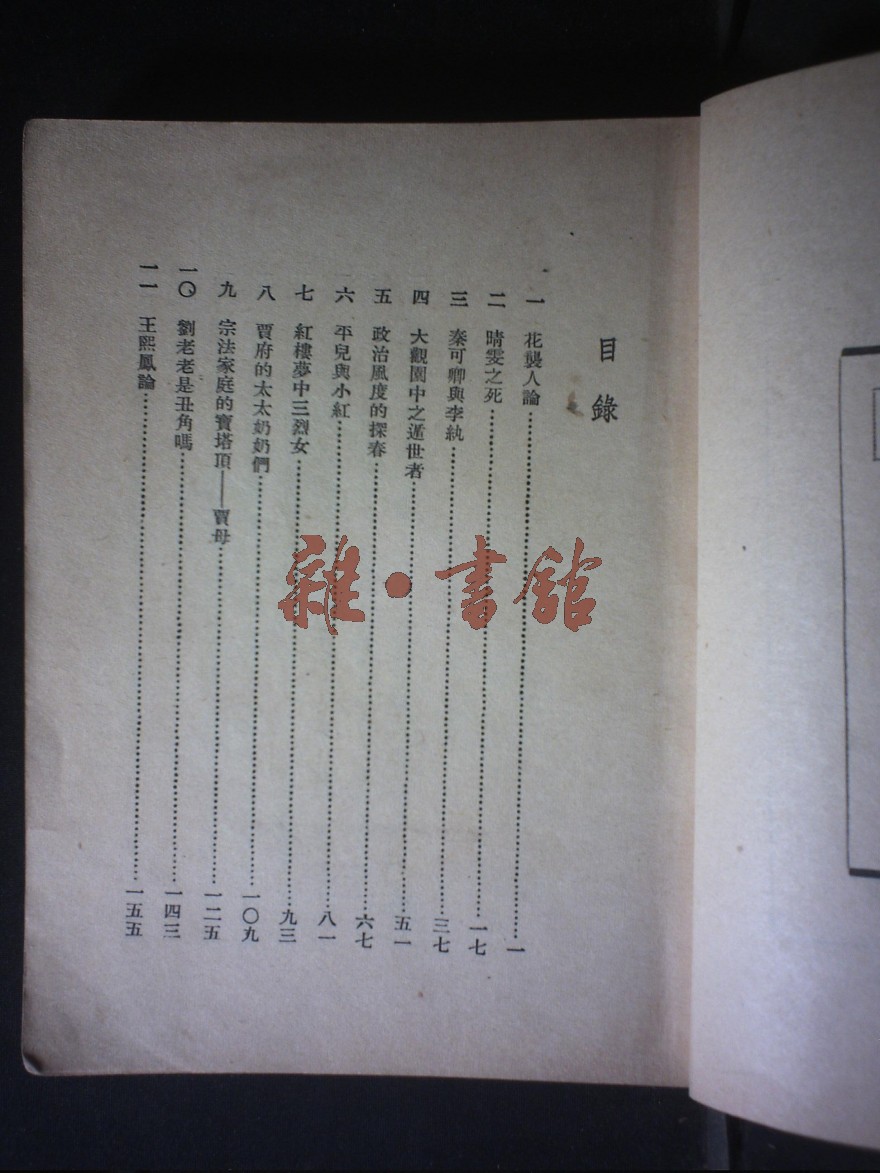 目錄
一 花襲人論……一
二 晴雯之死……一七
三 秦可卿與李紈……三七
四 大觀園中之遁世者……五一
五 政治風度的探春……六七
六 平兒與小紅……八一
七 紅樓夢中三烈女……九三
八 賈府的太太奶奶們……一〇九
九 宗法家庭的寶塔頂——賈母……一二五
一〇 劉老老是丑角嗎……一四三
一一 王熙鳳論……一五五
雜·書館